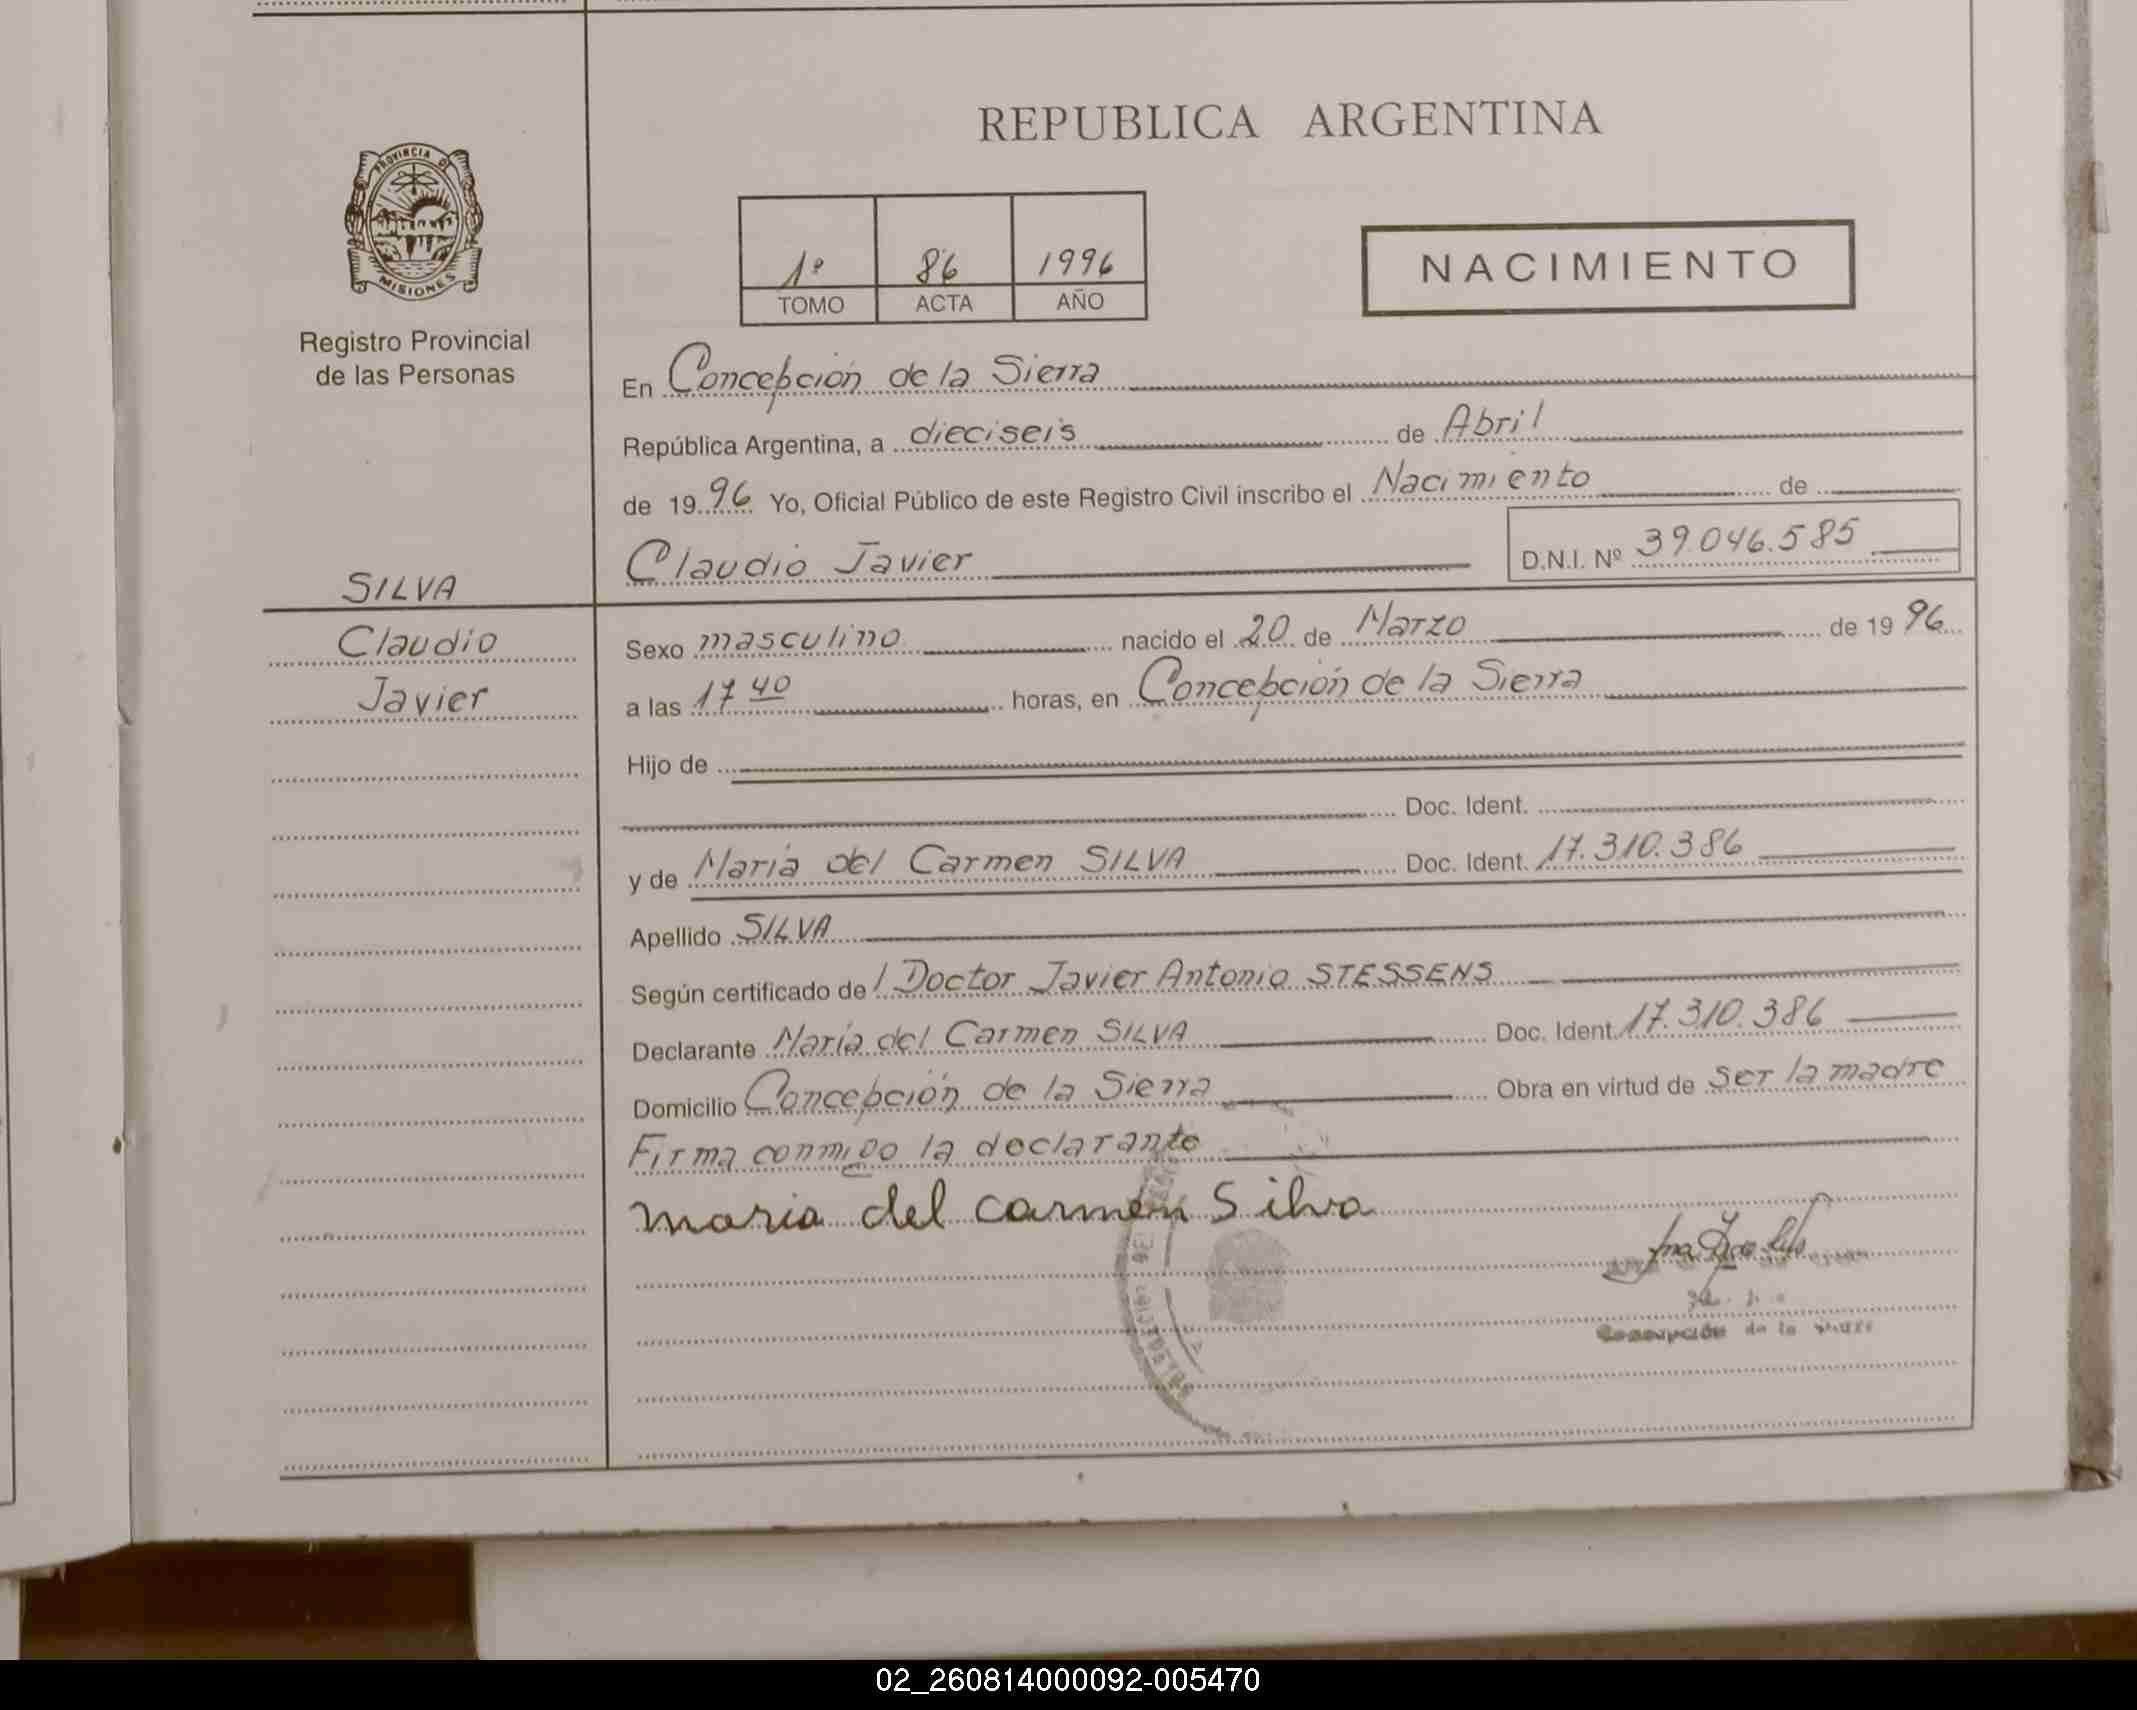 REPUBLICA ARGENTINA
PROVINCIA DE
MISIONES
Registro Provincial
de las Personas
1º 86 1996
TOMO ACTA AÑO
NACIMIENTO
En Concepción de la Sierra
República Argentina, a dieciseis de Abril
de 1996 Yo, Oficial Público de este Registro Civil inscribo el Nacimiento de
Claudio Javier D.N.I. Nº 39.046.585
SILVA
Claudio
Javier
Sexo masculino nacido el 20 de Marzo de 1996
a las 17 40 horas, en Concepción de la Sierra
Hijo de
Doc. Ident.
y de María del Carmen SILVA Doc. Ident. 17.310.386
Apellido SILVA
Según certificado del Doctor Javier Antonio STESSENS
Declarante María del Carmen SILVA Doc. Ident. 17.310.386
Domicilio Concepción de la Sierra Obra en virtud de ser la madre
Firma conmigo la declarante
maria del carmen Silva
Concepción de la
02_260814000092-005470